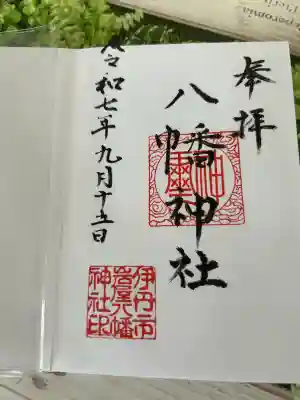 奉拝
八幡神社
令和七年九月十五日
伊丹市
岩屋八幡
神社印
Peperomia